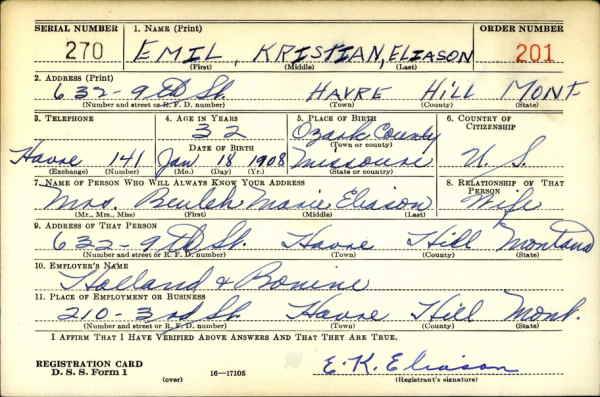 SERIAL NUMBER 1. NAME (Print) ORDER NUMBER
270 EMIL, KRISTIAN, ELIASON 201
(First) (Middle) (Last)
2. ADDRESS (Print)
632-9th St. HAVRE HILL MONT.
(Number and street or R. F. D. number) (Town) (County) (State)
3. TELEPHONE 4. AGE IN YEARS 5. PLACE OF BIRTH 6. COUNTRY OF CITIZENSHIP
32 Ozark County
DATE OF BIRTH (Town or county)
Havre 141 Jan 18 1908 Missouri U. S.
(Exchange) (Number) (Mo.) (Day) (Yr.) (State or country)
7. NAME OF PERSON WHO WILL ALWAYS KNOW YOUR ADDRESS 8. RELATIONSHIP OF THAT PERSON
Mrs. Beulah Marie Eliason Wife
(Mr., Mrs., Miss) (First) (Middle) (Last)
9. ADDRESS OF THAT PERSON
632-9th St. Havre Hill Montana
(Number and street or R. F. D. number) (Town) (County) (State)
10. EMPLOYER'S NAME
Holland & Bonine
11. PLACE OF EMPLOYMENT OR BUSINESS
210-3rd St. Havre Hill Mont.
(Number and street or R. F. D. number) (Town) (County) (State)
I AFFIRM THAT I HAVE VERIFIED ABOVE ANSWERS AND THAT THEY ARE TRUE.
REGISTRATION CARD E. K. Eliason
D. S. S. Form 1 (over) 16—17105 (Registrant's signature)